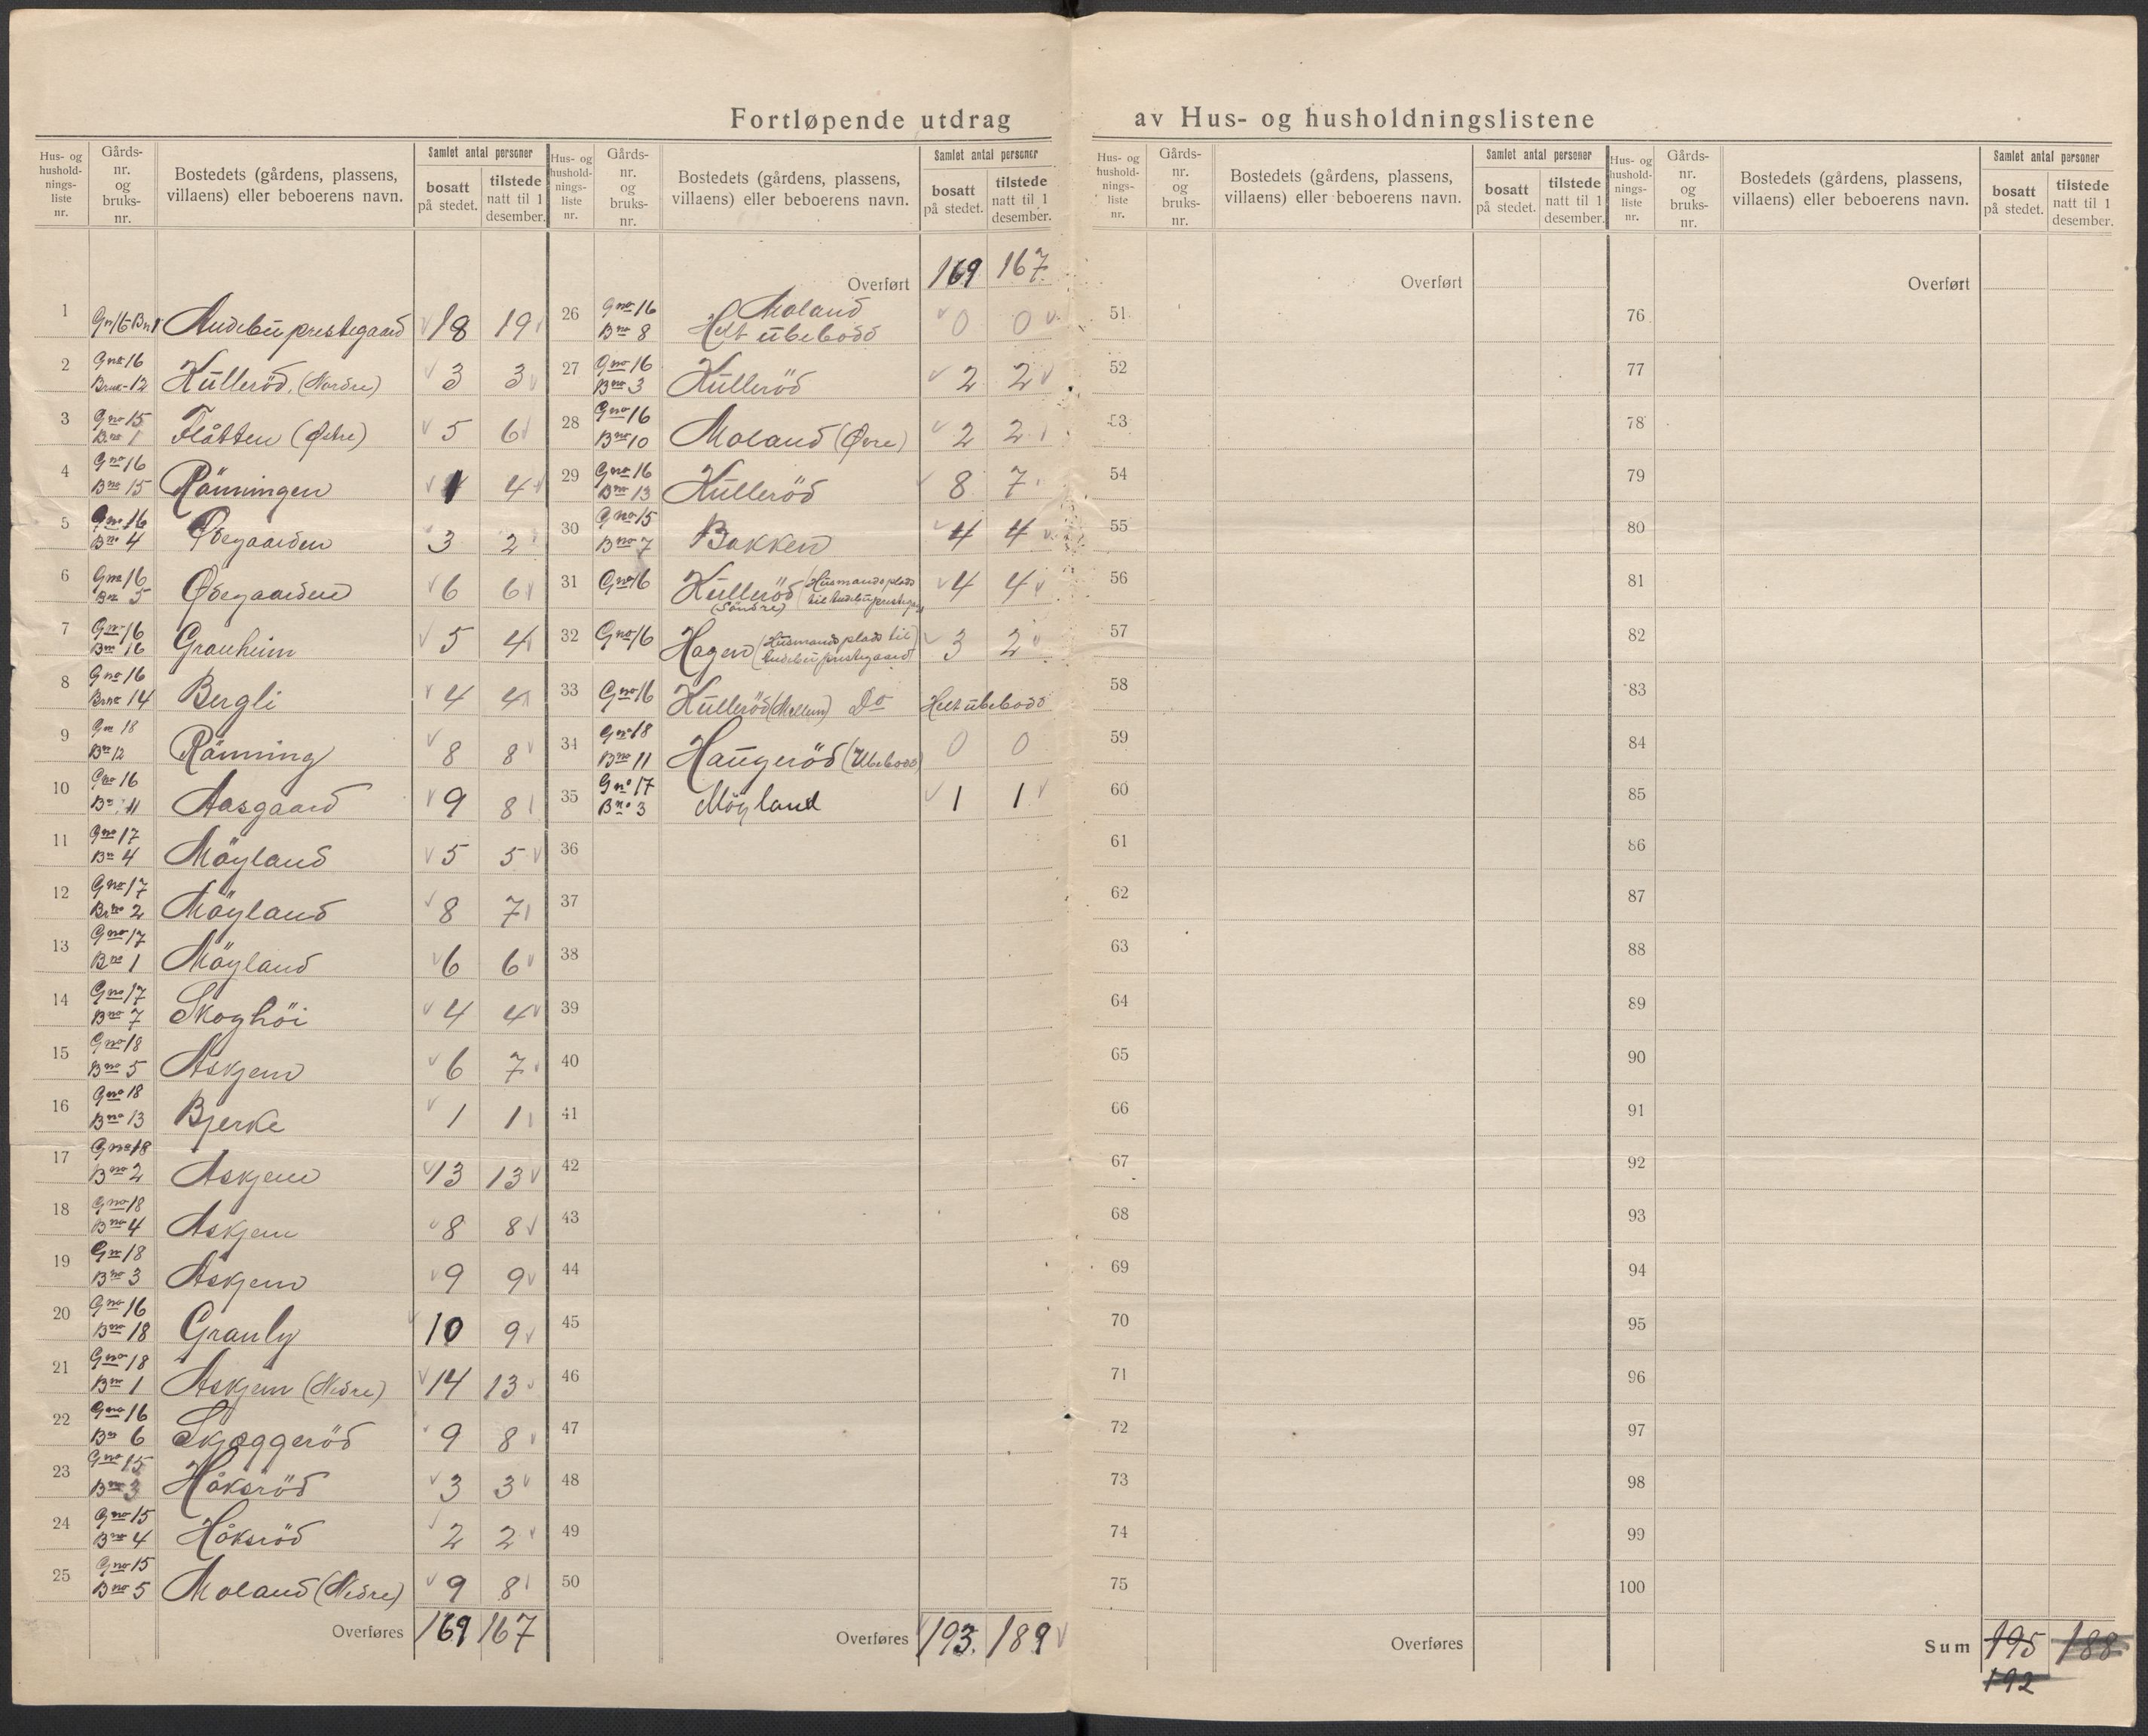 Fortløpende utdrag av Hus- og husholdningslistene
Hus- og husholdningsliste nr. | Gårds-nr. og bruks-nr. | Bostedets (gårdens, plassens, villaens) eller beboerens navn. | Samlet antal personer | bosatt på stedet. | tilstede natt til 1 desember.
1 Gn16 Bn1 Andebu prestegaard 18 19
2 Gno 16 Bruk-12 Kulleröd (Nordre) 3 3
3 Gno 15 Bno 1 Flåtten (Østre) 5 6
4 Gno 16 Bno 15 Rönningen 1 4
5 Gno 16 Bno 4 Ødegaarden 3 2
6 Gno 16 Bno 5 Ødegaarden 6 6
7 Gno 16 Bno 16 Granheim 5 4
8 Gno 16 Bno 14 Bergli 4 4
9 Gno 18 Bno 12 Rönning 8 8
10 Gno 16 Bno 11 Aasgaard 9 8
11 Gno 17 Bno 4 Möyland 5 5
12 Gno 17 Brno 2 Möyland 8 7
13 Gno 17 Bno 1 Möyland 6 6
14 Gno 17 Bno 7 Skoghöi 4 4
15 Gno 18 Bno 5 Askjem 6 7
16 Gno 18 Bno 13 Bjerke 1 1
17 Gno 18 Bno 2 Askjem 13 13
18 Gno 18 Bno 4 Askjem 8 8
19 Gno 18 Bno 3 Askjem 9 9
20 Gno 16 Bno 18 Granly 10 9
21 Gno 18 Bno 1 Askjem (Nedre) 14 13
22 Gno 16 Bno 6 Skjæggeröd 9 8
23 Gno 15 Bno 3 Håkaröd 3 3
24 Gno 15 Bno 4 Håkaröd 2 2
25 Gno 15 Bno 5 Moland (Nedre) 9 8
Overføres 169 167
Hus- og husholdningsliste nr. | Gårds-nr. og bruks-nr. | Bostedets (gårdens, plassens, villaens) eller beboerens navn. | Samlet antal personer | bosatt på stedet. | tilstede natt til 1 desember.
Overført 169 167
26 Gno 16 Bno 8 Moland Helt ubebodd 0 0
27 Gno 16 Bno 3 Kulleröd 2 2
28 Gno 16 Bno 10 Moland (Øvre) 2 2
29 Gno 16 Bno 13 Kulleröd 8 7
30 Gno 15 Bno 7 Bakken 4 4
31 Gno 16 Kulleröd (Söndre) (Husmandsplads til Andebu prestegaard) 4 4
32 Gno 16 Hagen (Husmandsplads til Andebu prestegaard) 3 2
33 Gno 16 Kulleröd (Mellem) Do Helt ubebodd
34 Gno 18 Bno 11 Haugeröd (Ubebodd) 0 0
35 Gno 17 Bno 3 Möyland 1 1
36
37
38
39
40
41
42
43
44
45
46
47
48
49
50
Overføres 193. 189
Hus- og husholdningsliste nr. | Gårds-nr. og bruks-nr. | Bostedets (gårdens, plassens, villaens) eller beboerens navn. | Samlet antal personer | bosatt på stedet. | tilstede natt til 1 desember.
Overført
51
52
53
54
55
56
57
58
59
60
61
62
63
64
65
66
67
68
69
70
71
72
73
74
75
Overføres
Hus- og husholdningsliste nr. | Gårds-nr. og bruks-nr. | Bostedets (gårdens, plassens, villaens) eller beboerens navn. | Samlet antal personer | bosatt på stedet. | tilstede natt til 1 desember.
Overført
76
77
78
79
80
81
82
83
84
85
86
87
88
89
90
91
92
93
94
95
96
97
98
99
100
Sum 195 188
192